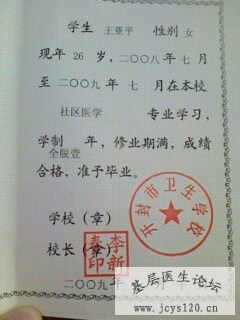 学生 王亚平 性别 女
现年 26 岁，二〇〇八年 七 月
至 二〇〇九 年 七 月在本校
社区医学 专业学习，
学制 年，修业期满，成绩
全脱壹
合格，准予毕业。
开封市卫生学校
学校（章）
校长（章）
李新春印
二〇〇九年
基层医生论坛
www.jcys120.cn